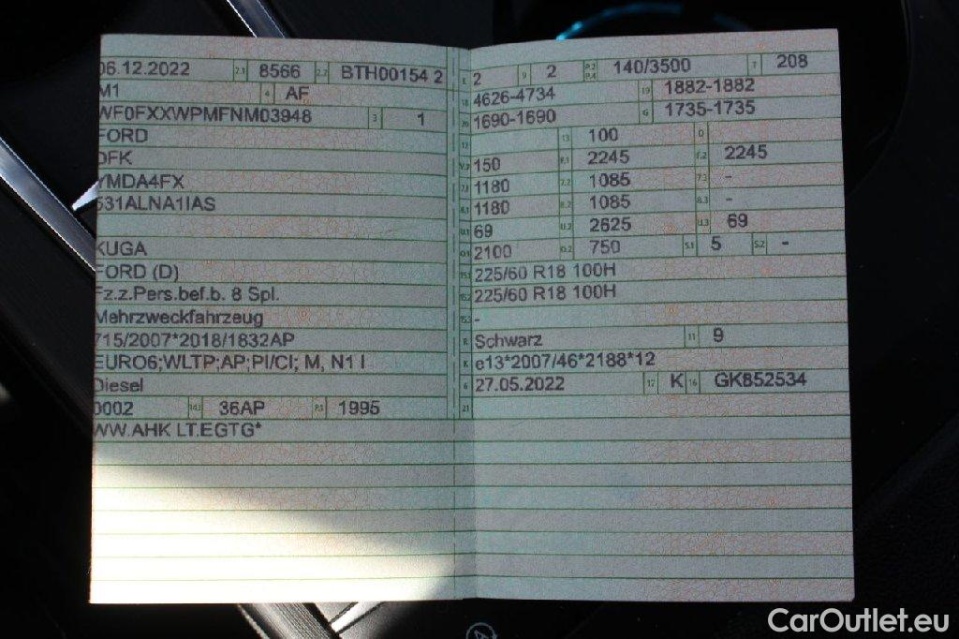 06.12.2022 2.1 8566 2.2 BTH00154 2
M1 4 AF
WF0FXXWPMFNM03948 3 1
FORD
DFK
YMDA4FX
531ALNA1IAS
KUGA
FORD (D)
Fz.z.Pers.bef.b. 8 Spl.
Mehrzweckfahrzeug
715/2007*2018/1832AP
EURO6;WLTP;AP;PI/CI; M, N1 I
Diesel
0002 36AP P.1 1995
WW.AHK LT.EGTG*
2 9 2 P.2 P.4 140/3500 T 208
18 4626-4734 19 1882-1882
20 1690-1690 G 1735-1735
12 13 100 Q
V.7 150 F.1 2245 F.2 2245
7.1 1180 7.2 1085 7.3 -
8.1 1180 8.2 1085 8.3 -
U.1 69 U.2 2625 U.3 69
O.1 2100 O.2 750 S.1 5 S.2 -
15.1 225/60 R18 100H
15.2 225/60 R18 100H
15.3 -
R Schwarz 11 9
K e13*2007/46*2188*12
6 27.05.2022 17 K 16 GK852534
21
CarOutlet.eu